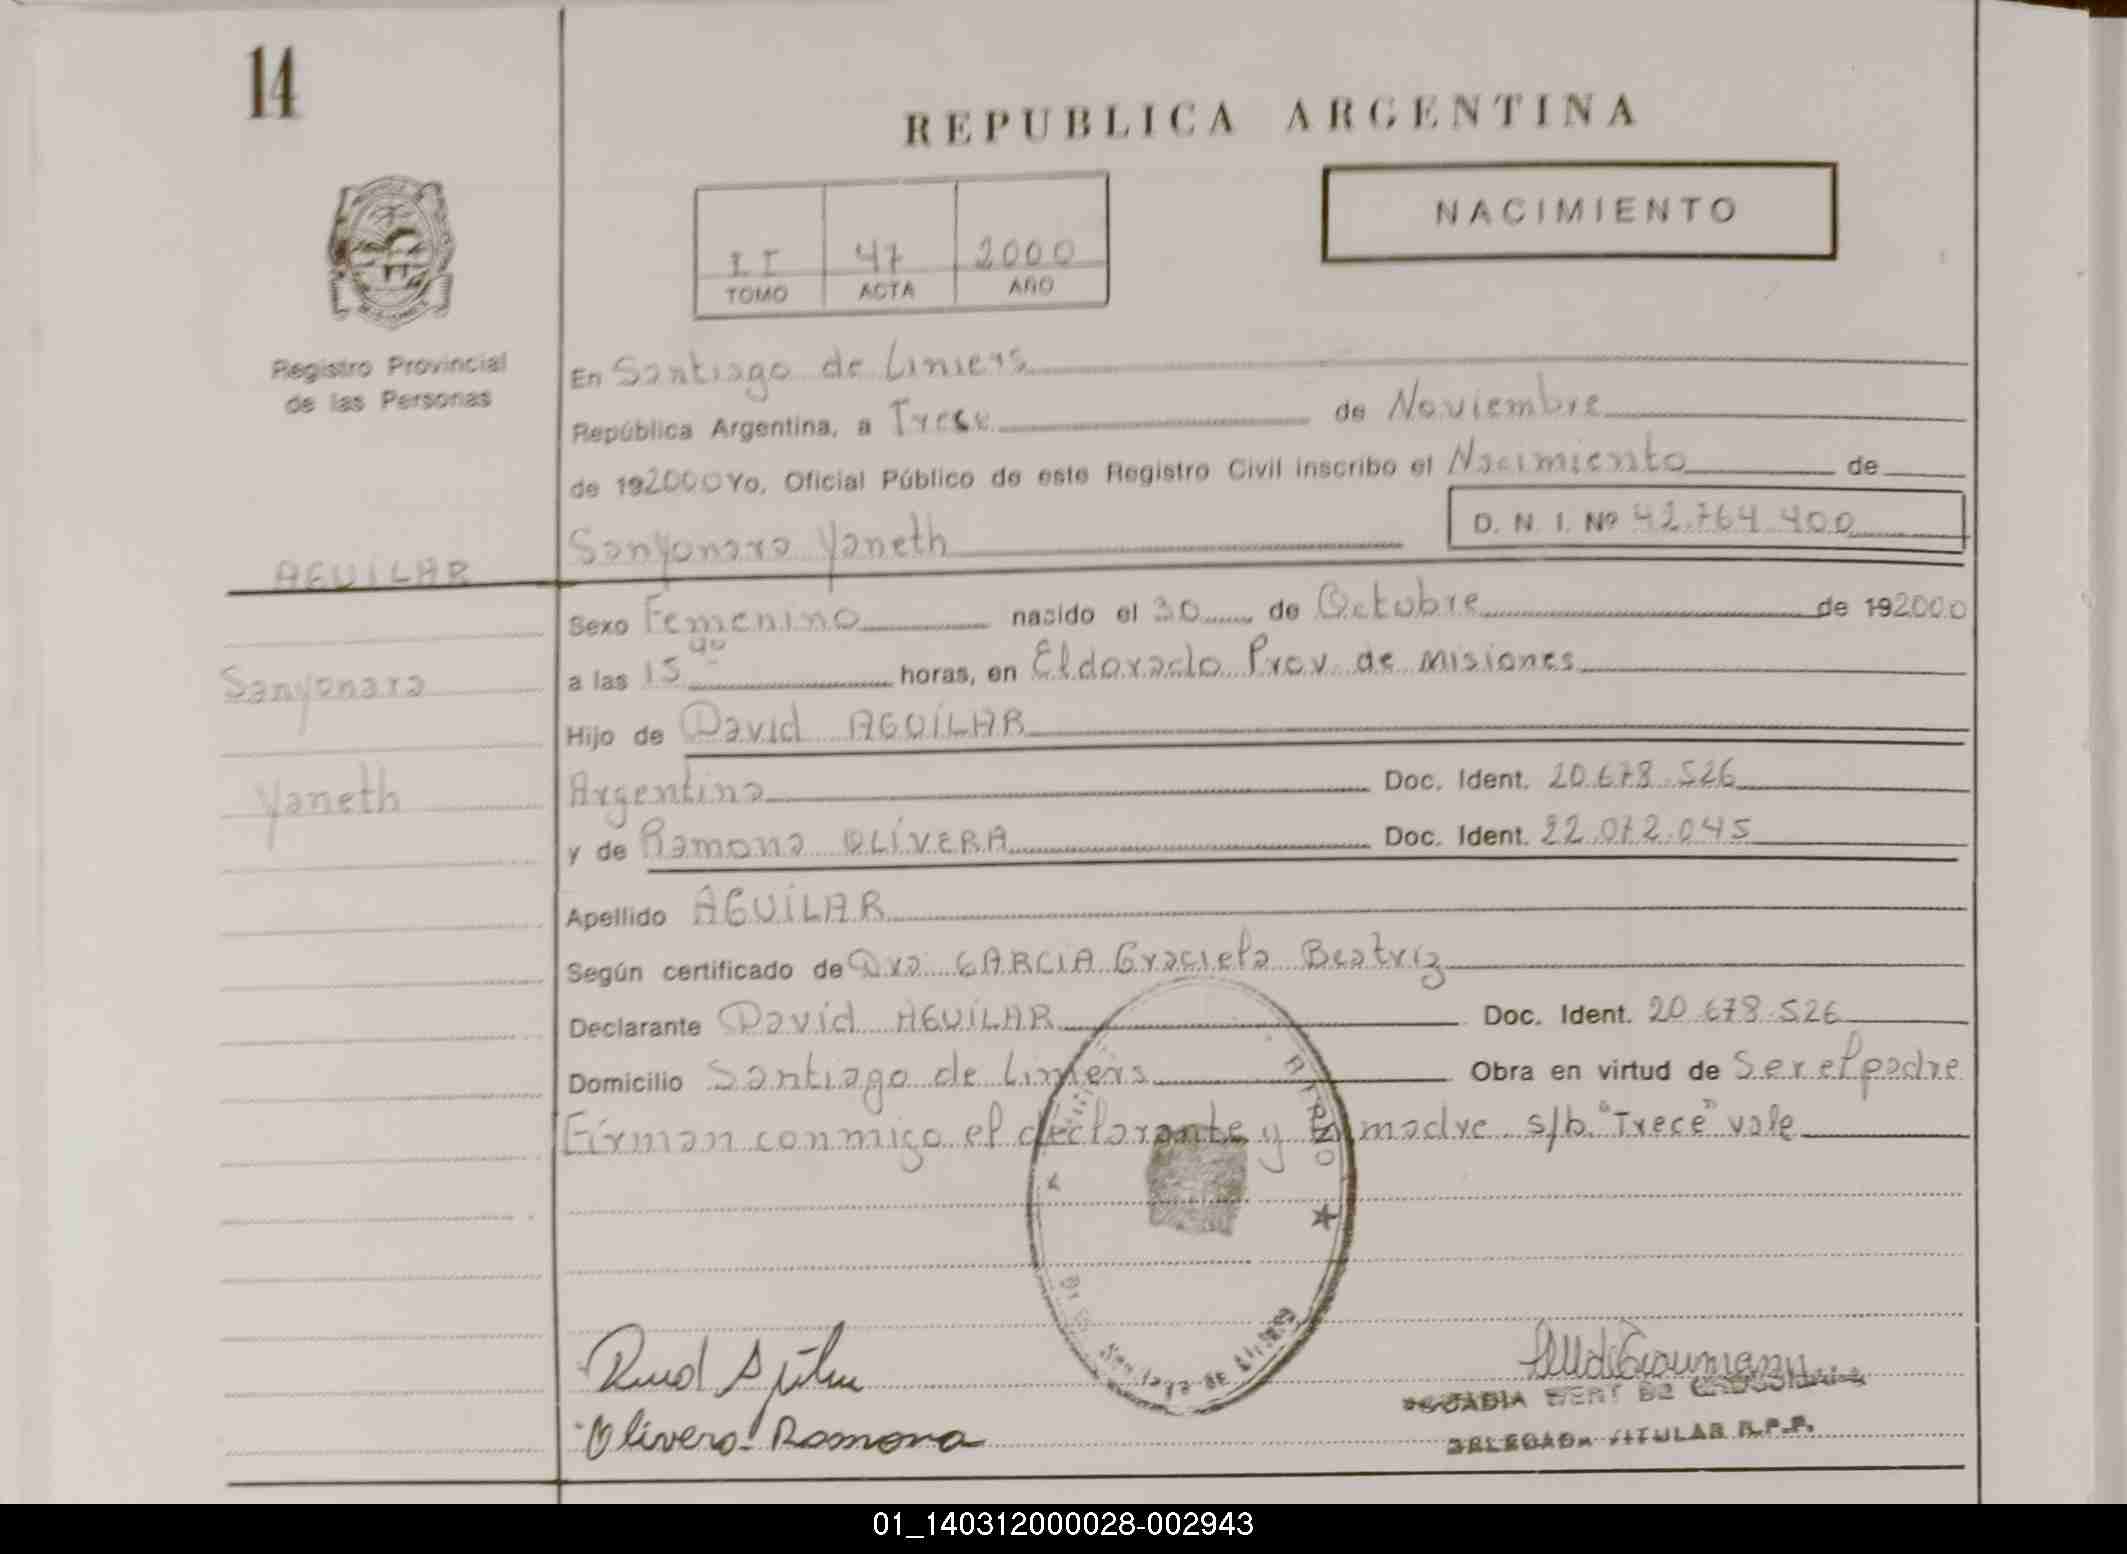 14
REPUBLICA ARGENTINA
NACIMIENTO
II 47 2000
TOMO ACTA AÑO
Registro Provincial
de las Personas
En Santiago de Liniers
República Argentina, a Trece de Noviembre
de 192000 Yo, Oficial Público de este Registro Civil inscribo el Nacimiento de
D. N. I. Nº 42.764.400
Sanyonara Yaneth
AGUILAR
Sexo Femenino nacido el 30 de Octubre de 192000
a las 15 00 horas, en Eldorado Prov. de Misiones
Sanyonara
Hijo de David AGUILAR
Yaneth
Argentina Doc. Ident. 20.678.526
y de Ramona OLIVERA Doc. Ident. 22.072.045
Apellido AGUILAR
Según certificado de Dra GARCIA Graciela Beatriz
Declarante David AGUILAR Doc. Ident. 20.678.526
Domicilio Santiago de Liniers Obra en virtud de Ser el padre
Firman conmigo el declarante y la madre s/b. "Trece" vale
Olivera Ramona
DELEGADA TITULAR R.P.P.
01_140312000028-002943